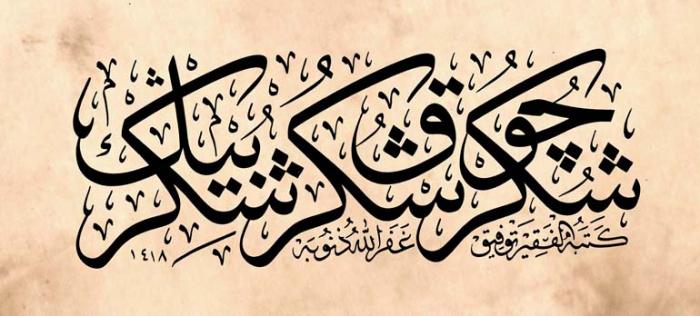 شكر چوق شكر بيك شكر
كتبه الفقير توفيق غفر الله ذنوبه ١٤١٨